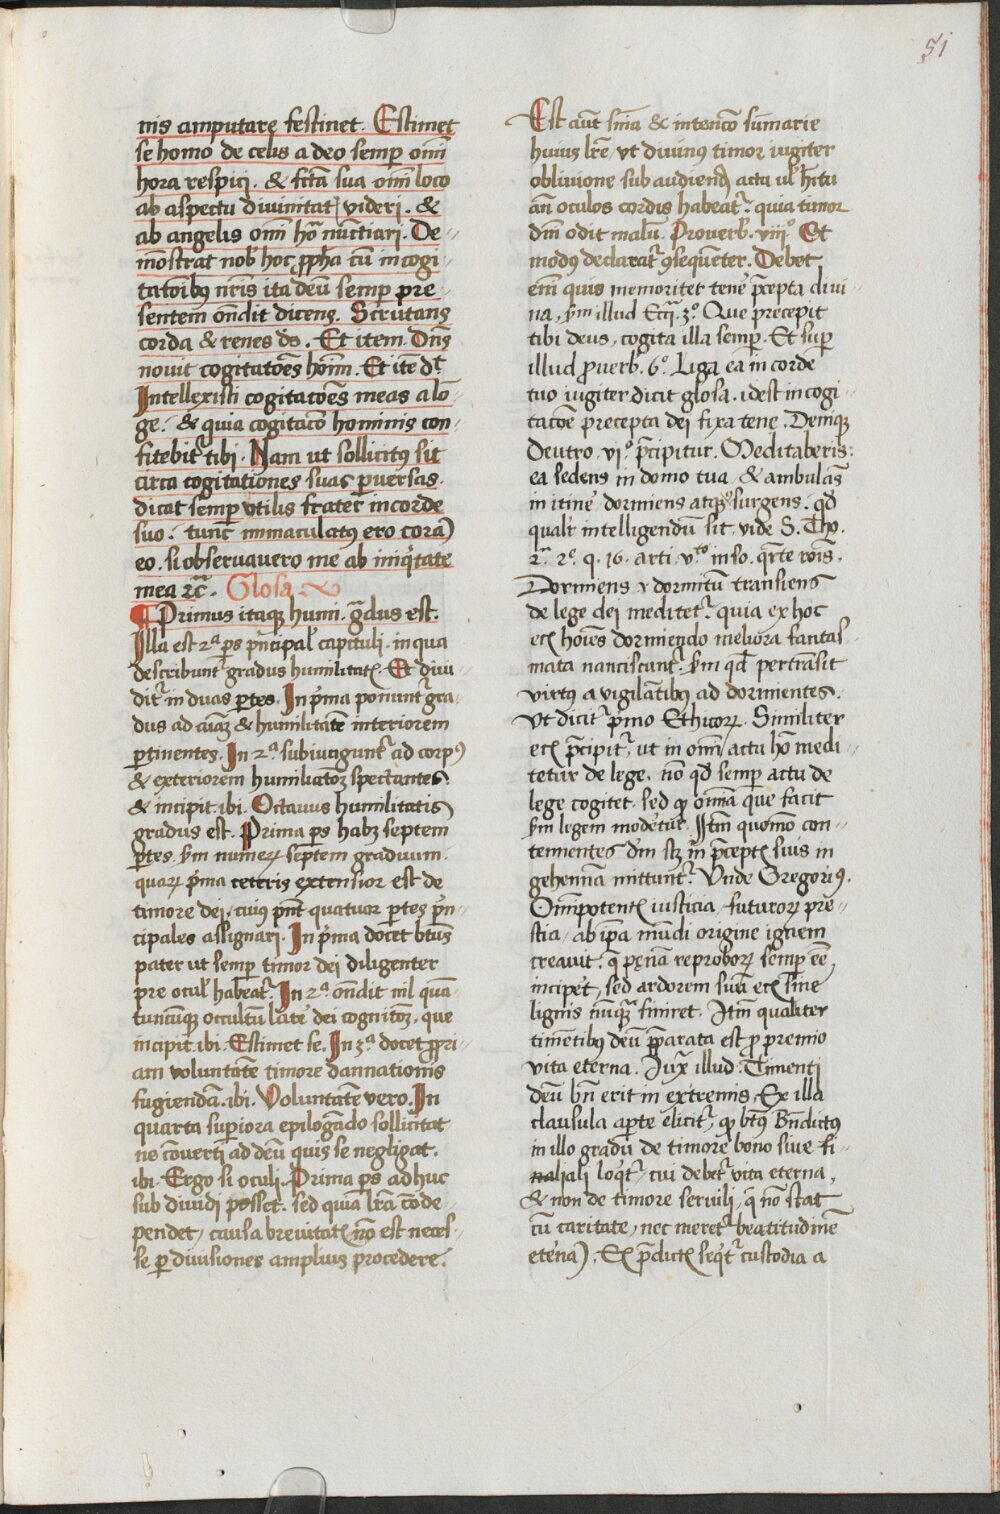 51
nis amputare festinet. Estimet
se homo de celis a deo semp omī
hora respici. & fcta sua omī loco
ab aspectu divinitat videri. &
ab angelis omī hōa nūctiari. De-
mōstrat nob hoc ppha cum in cogi-
tatoibꝰ nris ita deū semp pre-
sentem ondit dicens. Scrutans
corda & renes ds. Et item. Dns
novit cogitatoēs hoīm. Et itē dt
Intellexisti cogitacoēs meas a lō-
ge. & quia cogitaco hominis con-
fitebit tibi. Nam ut sollicitꝰ sit
circa cogitationes suas pversas.
dicat semp utilis frater in corde
suo. tunc immaculatꝰ ero corā
eo. si observavero me ab iniqtate
mea ⁊c. Glosa
¶ Primus itaqꝫ humi. gdus est.
Illa est 2ª ps pncipal capituli. in qua
describunt gradus humilitatꝭ. Et divi-
dit in duas ptes. In pma ponunt gra-
dus ad aīaꝫ & humilitatē interiorem
ptinentes. In 2ª subiungunt ad corpꝰ
& exteriorem humiliatoꝫ spectantes
& incipit ibi. Octavus humilitatis
gradus est. Prima ps habꝫ septem
ptes. sm numerꝫ septem graduum.
quaꝝ pma ceteris extensior est de
timore dei. cuiꝰ pnt quatuor ptes pn-
cipales assignari. In pma docet btūs
pater ut semp timor dei diligenter
pre ocul habeat. In 2ª ondit nil quā-
tuncūqꝫ occultū latē dei cognitoꝫ. que
incipit ibi. Estimet se. In 3ª docet ppri-
am voluntatē timore dannationis
fugiendā. ibi. Voluntatē vero. In
quarta superiora epilogādo sollicitat
nos cōverti ad deū quis se negligat.
ibi. Ergo si oculi. Prima ps adhuc
sub dividi posset. sed quia lrā cōde-
pendet, causa brevitatꝭ nō est neces-
se p divisiones amplius procedere.
Est aūt snia & intenco sumarie
huius lre, ut divinꝰ timor iugiter
oblivione sub audiend actu ul hītu
an oculos cordis habeat. quia timor
dni odit malū. Proverb. viijº Et
modꝰ declarat ꝯsequēter. Debet
em quis memoriter tenē pcepta divi-
na, sm illud Eccī. 3º. Que precepit
tibi deus, cogita illa semp. Et sup
illud pverb. 6º. Liga ea in corde
tuo iugiter dicit glosa. idest in cogi-
tacoē precepta dei fixa tene. Deniqꝫ
Deutro. vjº pcipitur. Meditaberis
ea sedens in domo tua, & ambulās
in itinē dormiens atqꝫ surgens. qd
qualr intelligendū sit, vide S. Tho.
2ª 2º. q. 16. arti. vto in so. qrte rois.
Dormiens v dormitū transiens
de lege dei meditet. quia ex hoc
ecꝭ hoies dormiendo meliora fantas-
mata nanciscant. sm qd pertrāsit
virtꝰ a vigilātibꝰ ad dormientes.
Ut dicit pmo Ethicoꝝ. Similiter
ecꝭ pcipit, ut in omī actu hō medi-
tetur de lege. nō qd semp actu de
lege cogitet. sed qꝫ omnia que facit
sm legem modētur. Itm quomō con-
temnentes dm scꝫ in pceptꝭ suis in
gehennā mittunt. Unde Gregoriꝰ.
Omīpotentꝭ iusticia, futuroꝝ pre-
scia, ab ipā mūdi origine ignem
creavit. q penā reproboꝝ semp eē
incipet, sed ardorem suū ecꝭ sine
lignis nūqꝫ finiret. Itm qualiter
timētibꝰ deū pparata est p premio
vita eterna. Iux illud: Timenti
deū bn erit in extremis. Ex illa
clausula apte elicit, qꝫ btꝰ Bndictꝰ
in illo gradu de timore bono sive fi-
nali loqt, cui debet vita eterna.
& non de timore servili, q nō stat
cū caritate, nec meret beatitudinē
eternā. Ex pdictꝭ seqt custodia a